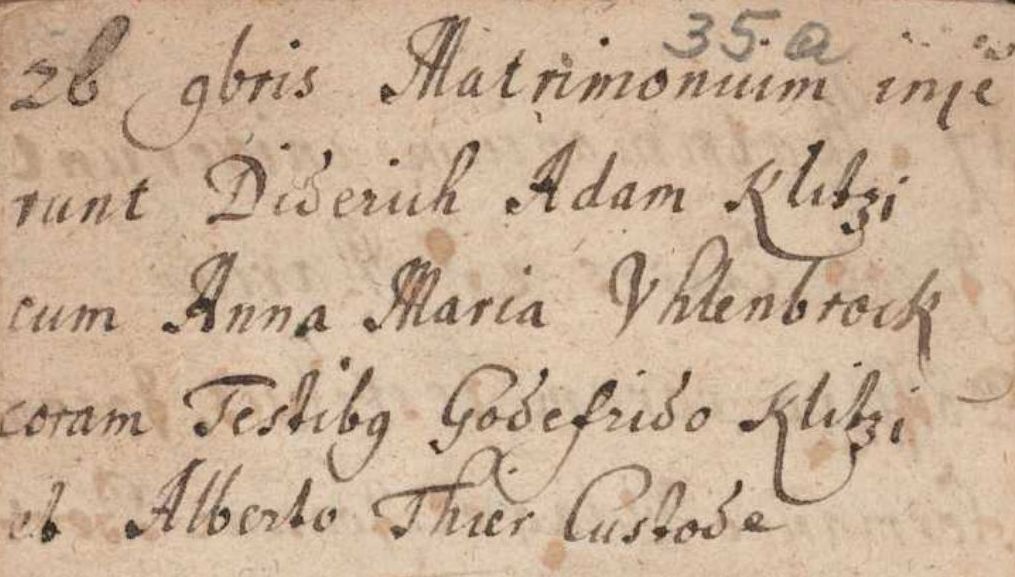 35 a
26 9bris Matrimonium inje
runt Diderich Adam Klitzi
cum Anna Maria Vhlenbrock
coram Testibg Godefrido Klitzi
et Alberto Thier Custode